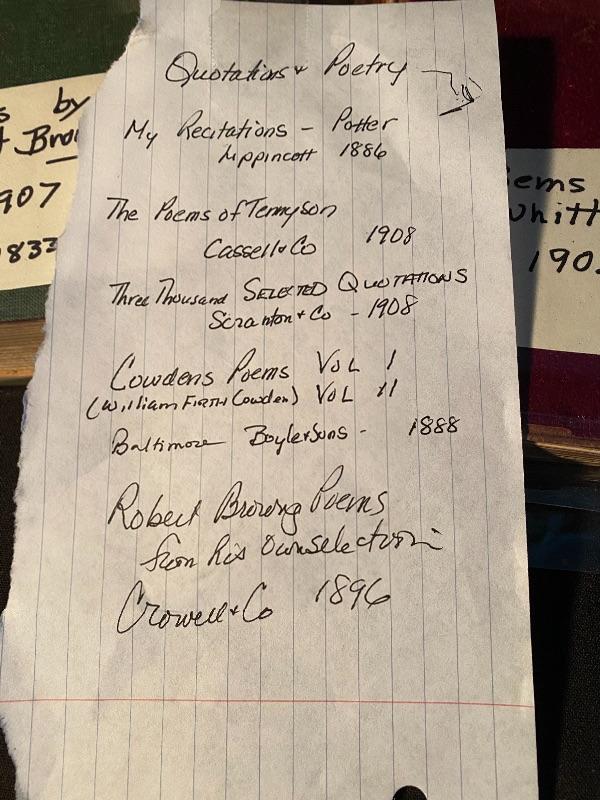 Quotations & Poetry
My Recitations - Potter
Lippincott 1886
The Poems of Tennyson
Cassell & Co 1908
Three Thousand SELECTED QUOTATIONS
Scranton & Co - 1908
Cowdens Poems VOL I
(William FIRTH Cowden) VOL II
Baltimore Boyle & Sons - 1888
Robert Browng Poems
from his own selection
Crowell & Co 1896
s by
t Brow
907
833
ems
Whitt
190